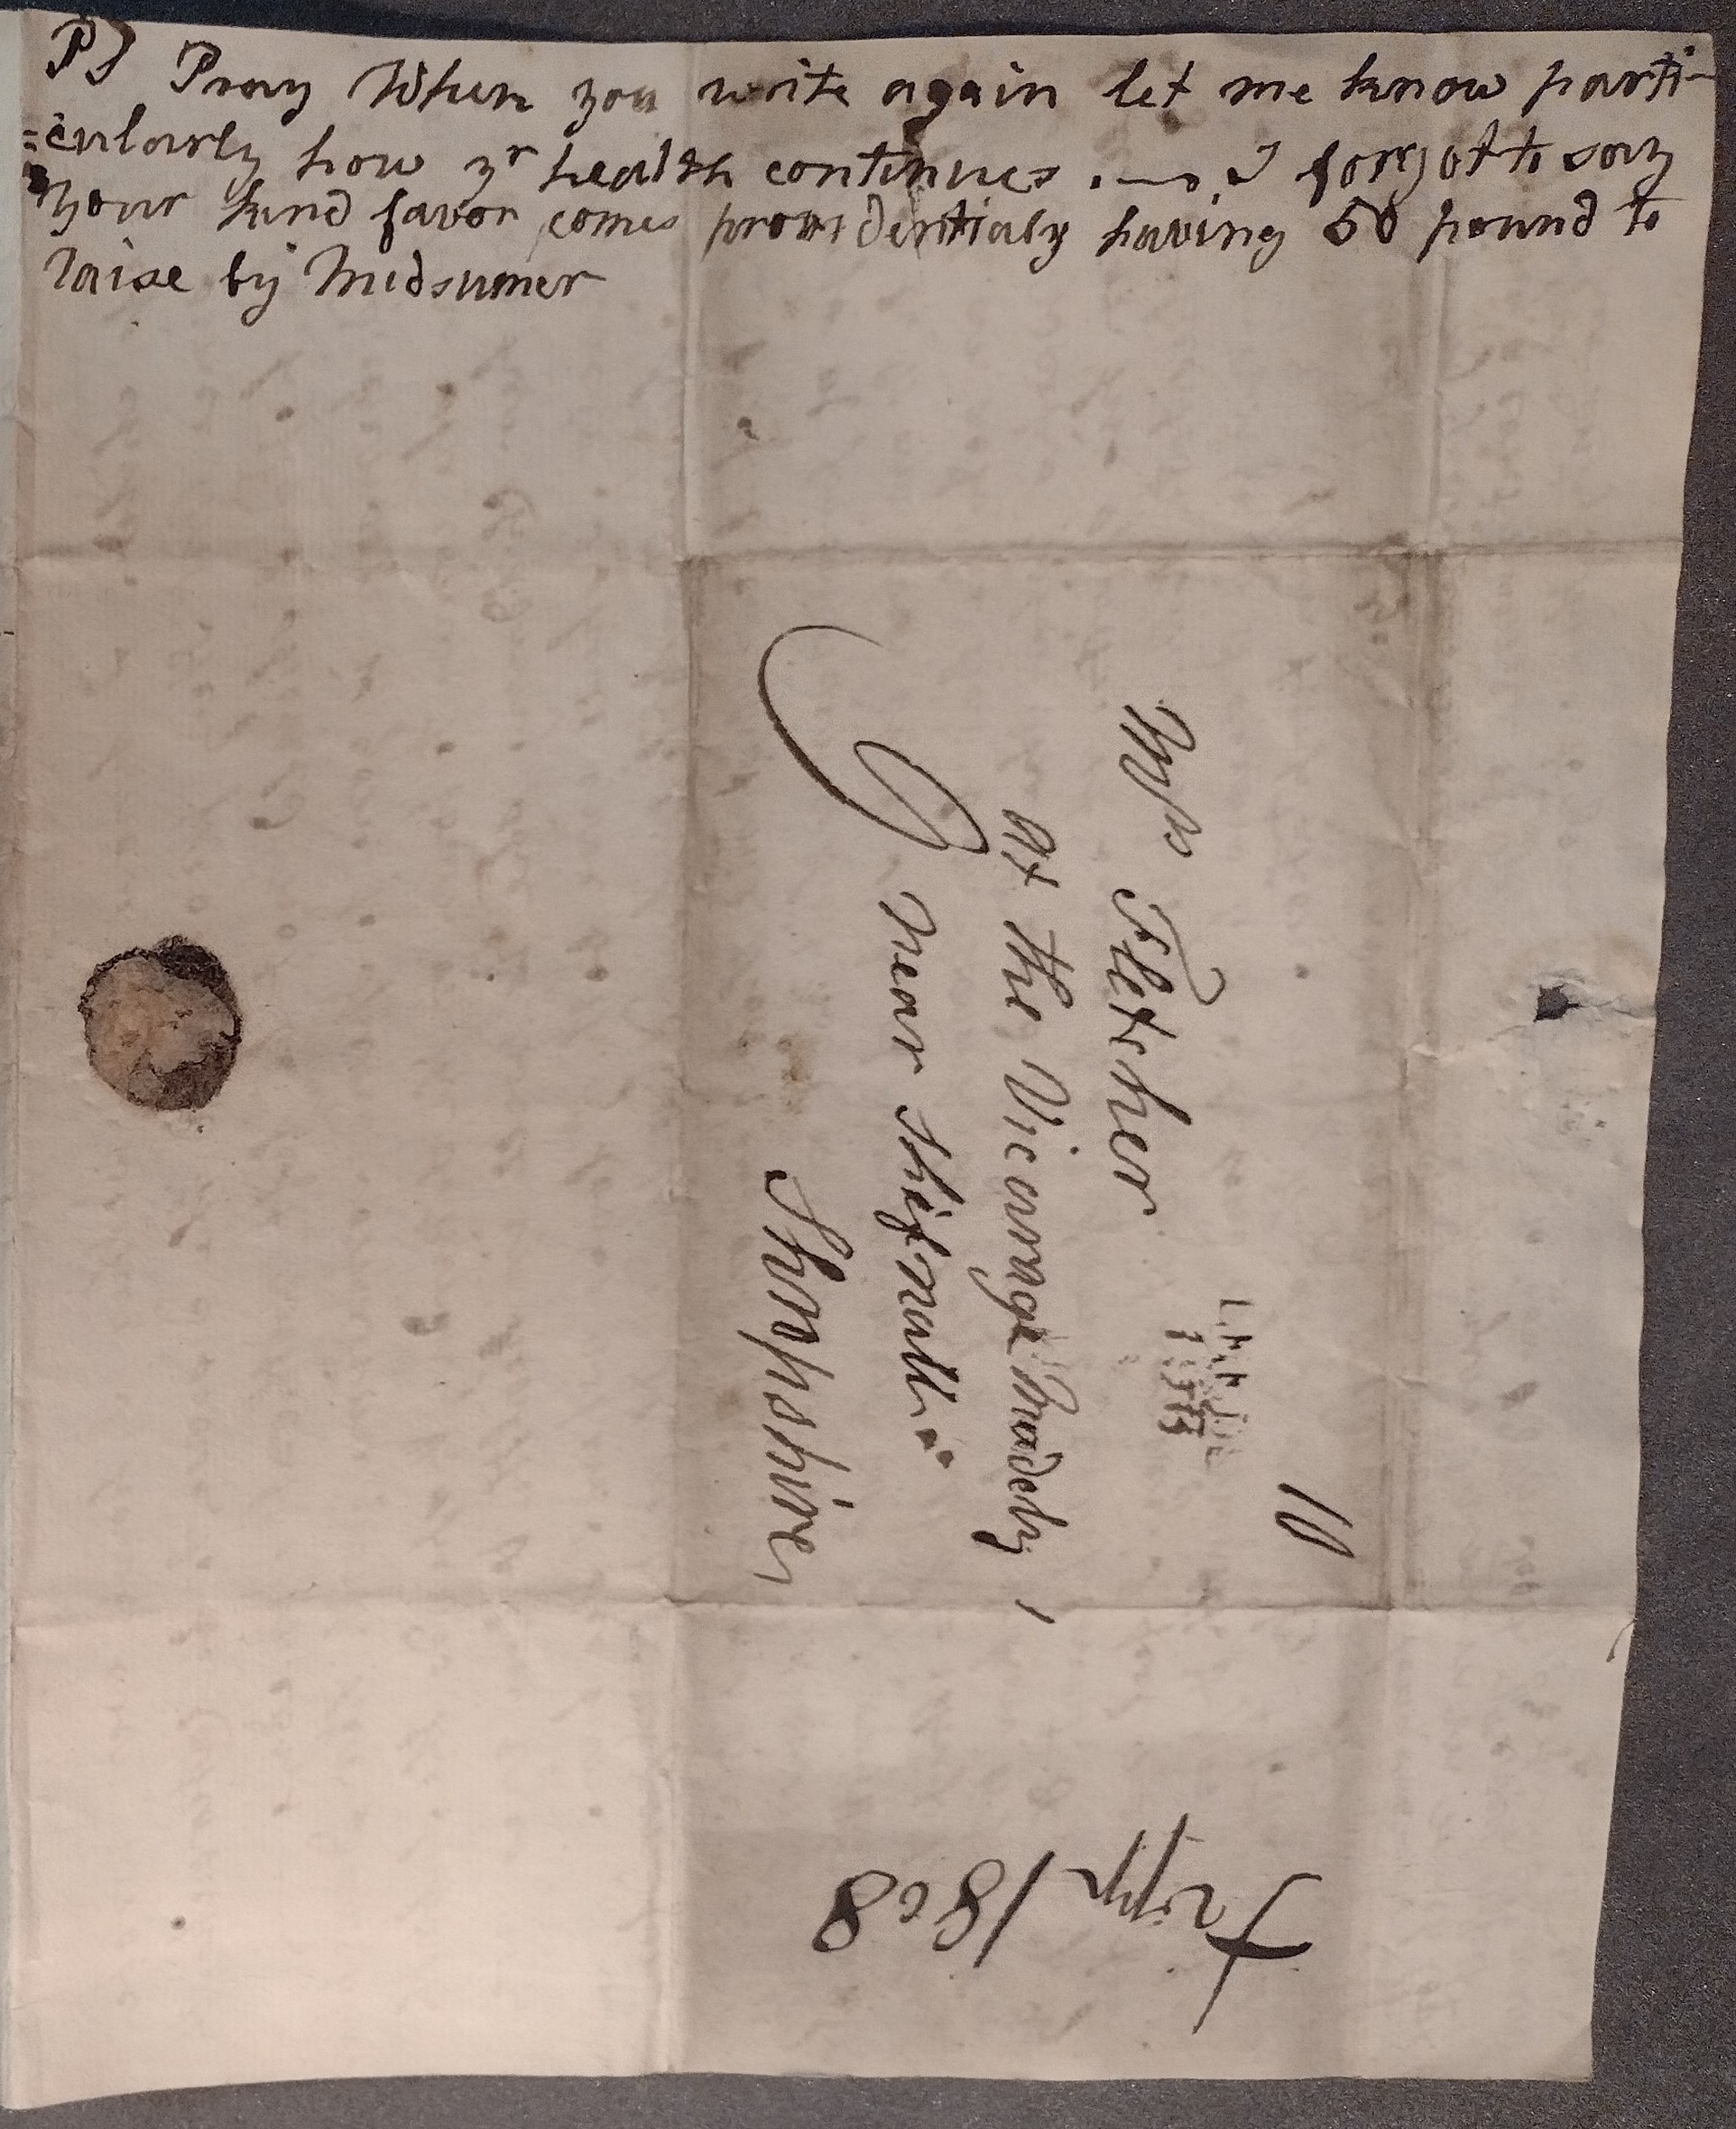 PS Pray When you write again let me know parti-
=cularly how yr health continues .—. I forgot to say
your kind favor comes providentialy having 50 pound to
raise by Midsumer
10
Mrs Fletcher
At the Vicarage Madely
near Shifnall
Shropshire
1808